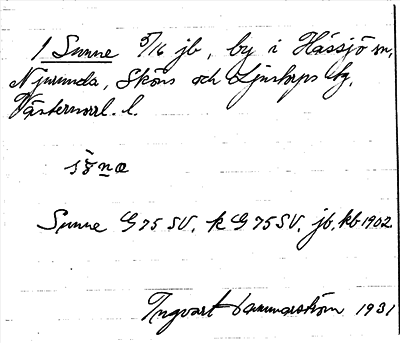 1 Sunne 5/16 jb, by i Hässjö sn,
Njurunda, Sköns och Ljustorps tg,
Västernorrl. l.
Sunne G 75 SV, k G 75 SV, jb, kb 1902.
Ingvart Hammarström 1931